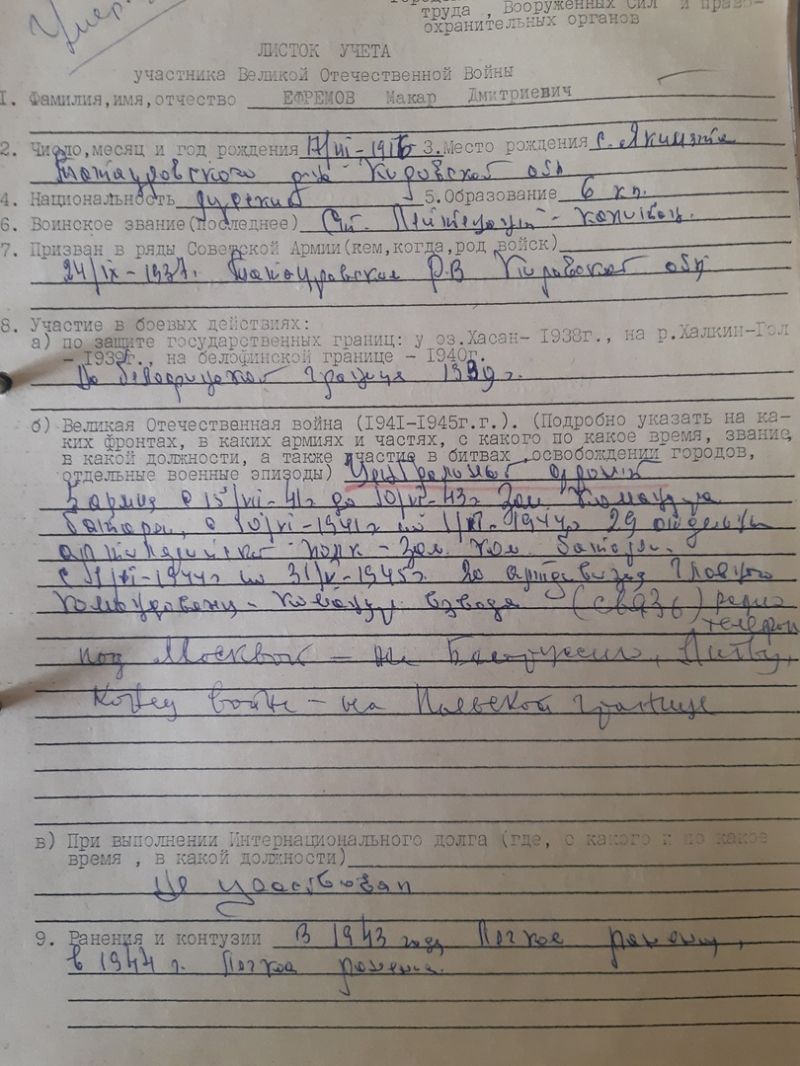 Умер.
труда , Вооруженных Сил и право-
охранительных органов
ЛИСТОК УЧЕТА
участника Великой Отечественной Войны
I. Фамилия,имя,отчество ЕФРЕМОВ Макар Дмитриевич
2. Число,месяц и год рождения 17/VII-1916 3.Место рождения с.
Татауровского р-на Кировской обл
4. Национальность русский 5.Образование 6 кл.
6. Воинское звание(последнее) Ст. Лейтенант -
7. Призван в ряды Советской Армии(кем,когда,род войск)
24/IX-1937г. Татауровское Р.В Кировской обл
8. Участие в боевых действиях:
а) по защите государственных границ: у оз.Хасан- 1938г., на р.Халкин-Гол
- 1939г., на белофинской границе - 1940г.
На белофинской границе 1939г.
б) Великая Отечественная война (1941-1945г.г.). (Подробно указать на ка-
ких фронтах, в каких армиях и частях, с какого по какое время, звание,
в какой должности, а также участие в битвах ,освобождении городов,
отдельные военные эпизоды) Центральный фронт
5 армия с 15/VII-41г до 10/VI-43г Зам.
батареи, с 10/VI-1941г по 1944г 29
полк - Зам. Ком. батареи.
1944г по 31/V-1945г. 20 Главного
взвода (связь) радио
телефон
под Москвой - на Белоруссию, Литву,
Конец войне - на Польской границе
в) При выполнении Интернационального долга (где, с какого и по какое
время , в какой должности)
Не участвовал
9. Ранения и контузии В 1943 году Легкое ранение,
в 1944 г. Легкое ранение.